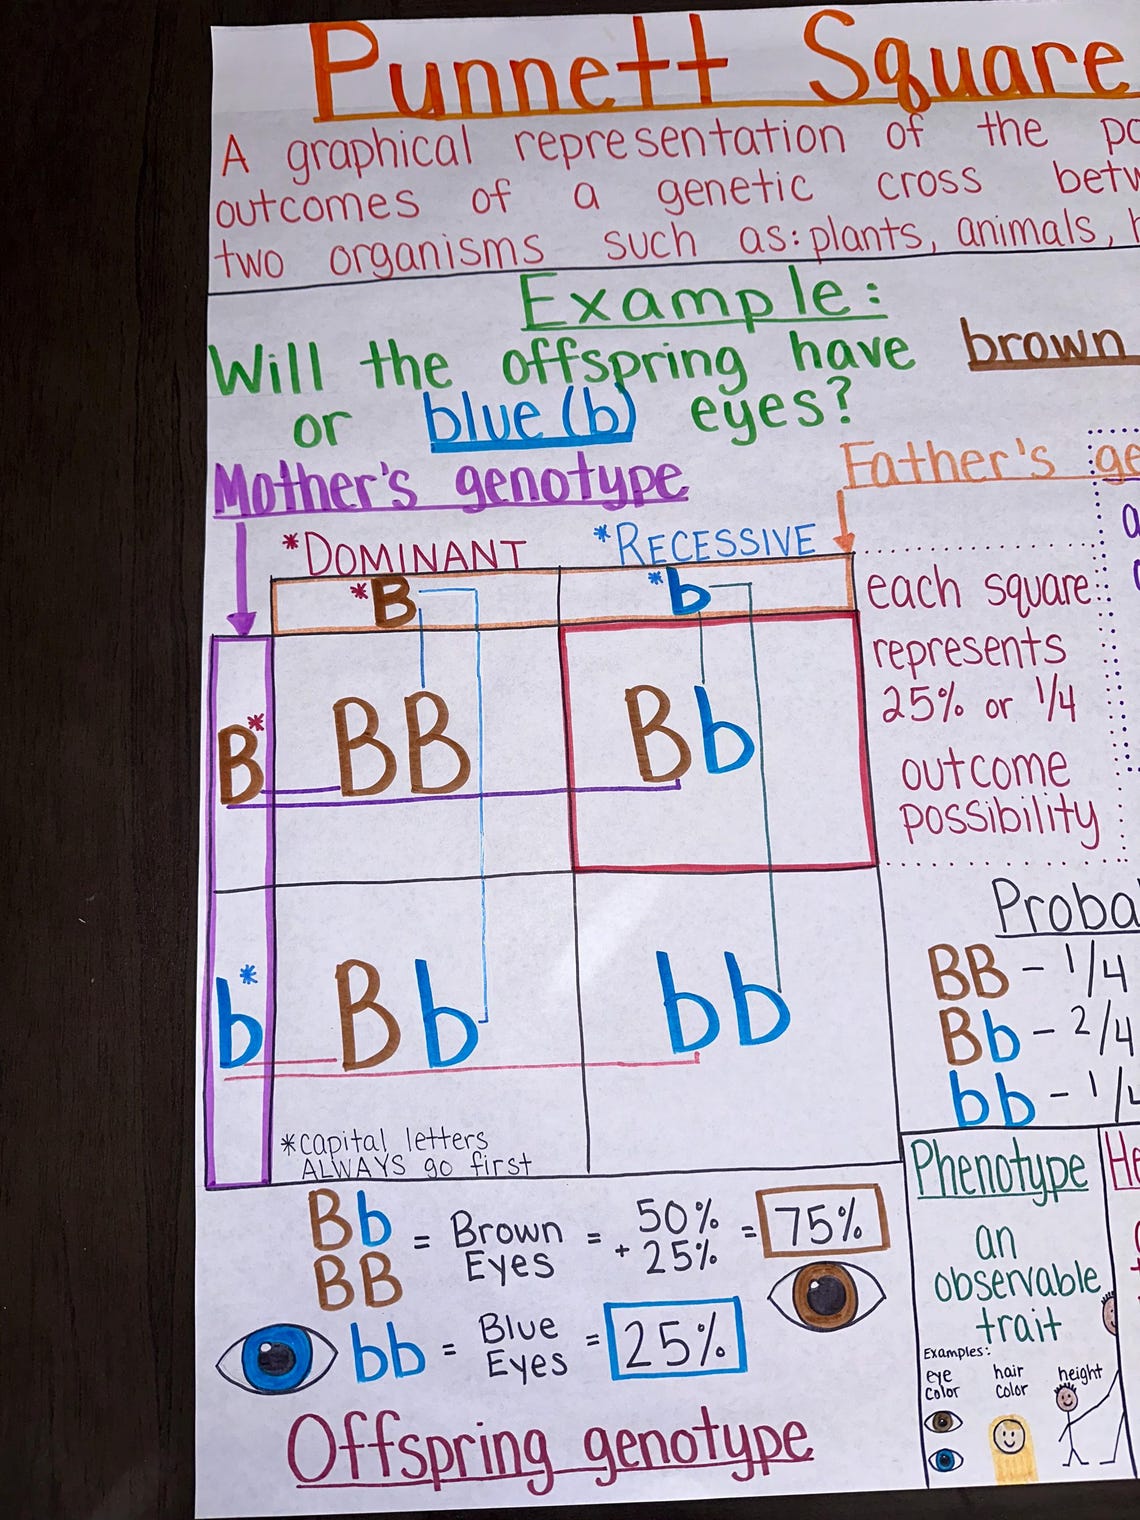 Punnett Square
A graphical representation of the
outcomes of a genetic cross
two organisms such as: plants, animals,
Example:
Will the offspring have brown
or blue (b) eyes?
Mother's genotype
Father's
*DOMINANT *RECESSIVE
*B *b
B* BB Bb
b* Bb bb
*capital letters
ALWAYS go first
each square
represents
25% or 1/4
outcome
possibility
BB - 1/4
Bb - 2/4
bb - 1/4
Bb
BB
= Brown
Eyes
= 50%
+ 25%
= 75%
bb = Blue
Eyes
= 25%
Offspring genotype
Phenotype
an
observable
trait
Examples:
eye
color
hair
color
height